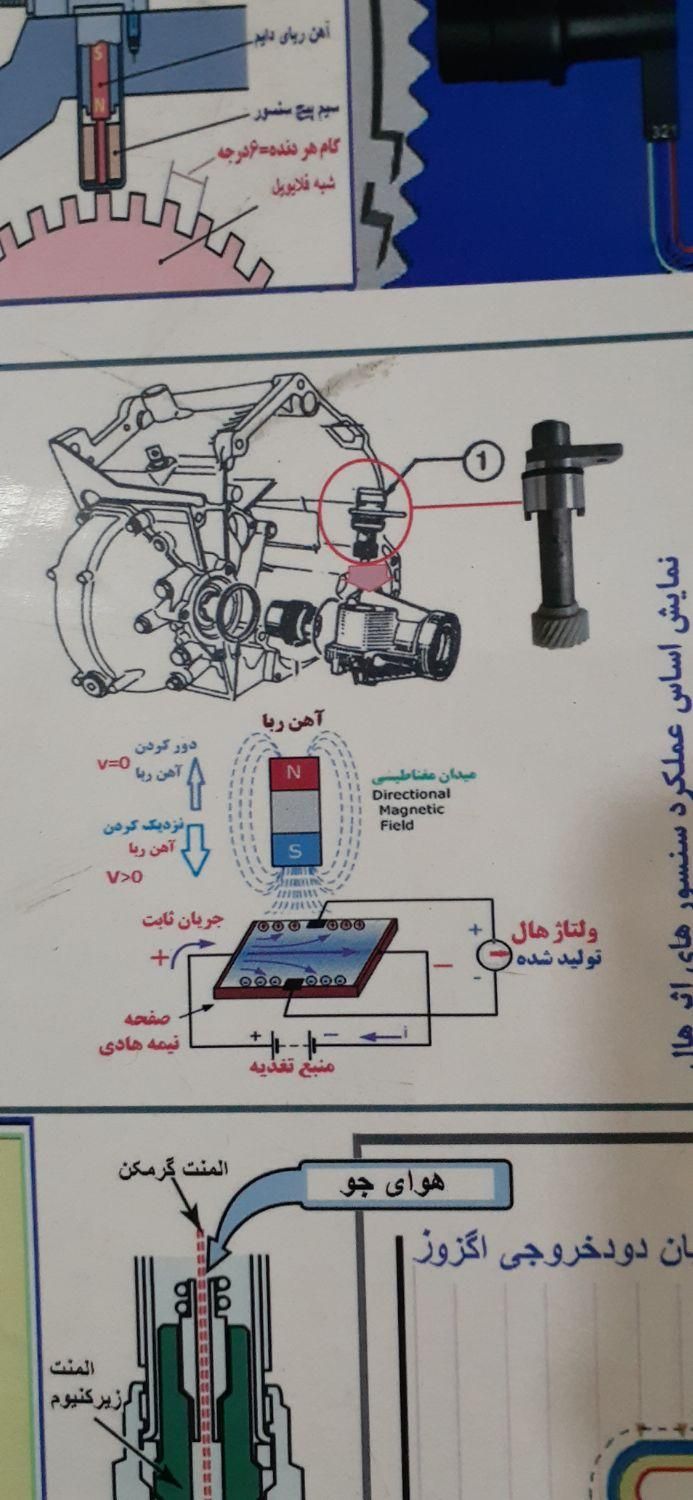 S
آهن ربای دایم
N
سیم پیچ سنسور
گام هر دنده=۶درجه
شبه فلایویل
321
1
نمایش اساس عملکرد سنسور های اثر هال
آهن ربا
دور کردن
آهن ربا
v=0
نزدیک کردن
آهن ربا
V>0
N
S
میدان مغناطیسی
Directional
Magnetic
Field
جریان ثابت
+
−
+
-
ولتاژ هال
تولید شده
صفحه
نیمه هادی
+
−
i
منبع تغذیه
المنت گرمکن
هوای جو
دودخروجی اگزوز
المنت
زیرکنیوم